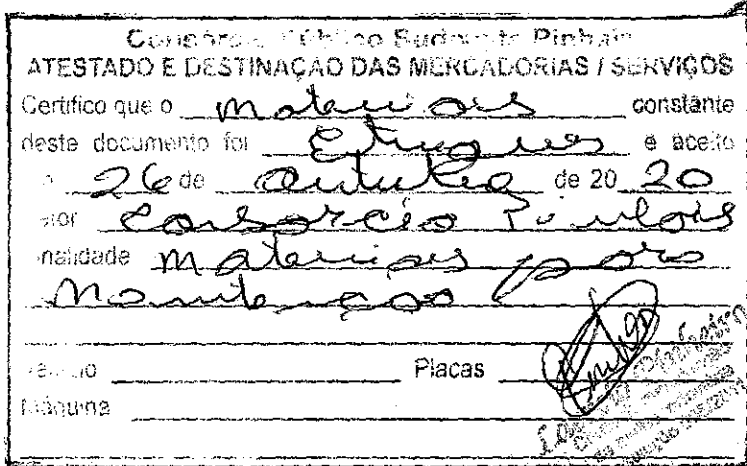 Consórcio Público Sudoeste Pinhais
ATESTADO E DESTINAÇÃO DAS MERCADORIAS / SERVIÇOS
Certifico que o Materiais constante
deste documento foi Entregues e aceito
26 de Outubro de 20 20
Consórcio Pinhais
nalidade Materiais para
Manutenção
Placas
Máquina